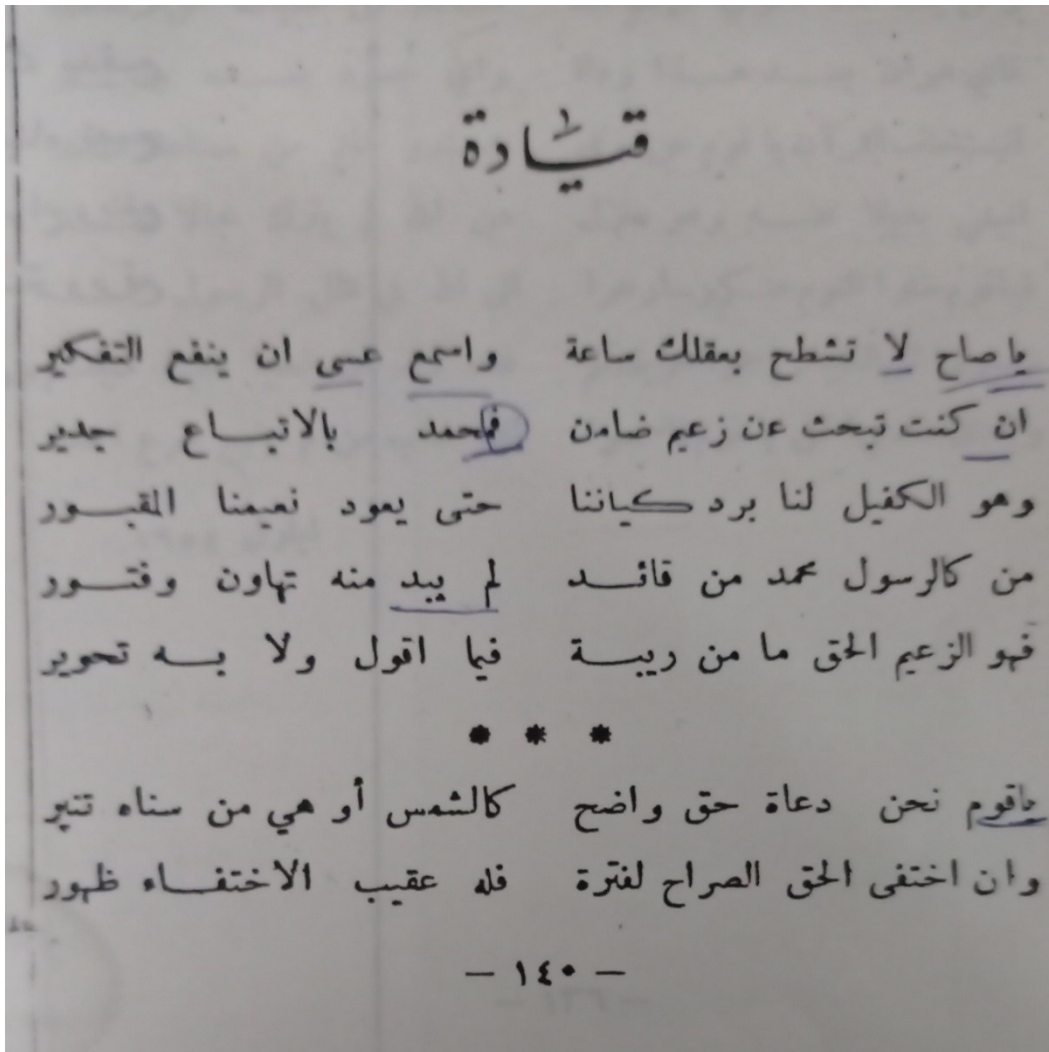 قيادة
يا صاح لا تشطح بعقلك ساعة واسمع عسى ان ينفع التفكير
ان كنت تبحث عن زعيم ضامن فمحمد بالاتباع جدير
وهو الكفيل لنا برد كياننا حتى يعود نعيمنا المقبور
من كالرسول محمد من قائد لم يبد منه تهاون وفتور
فهو الزعيم الحق ما من ريبة فيما اقول ولا به تحوير
* * *
ياقوم نحن دعاة حق واضح كالشمس أو هي من سناه تنير
وان اختفى الحق الصراح لفترة فله عقيب الاختفاء ظهور
- ١٤٠ -